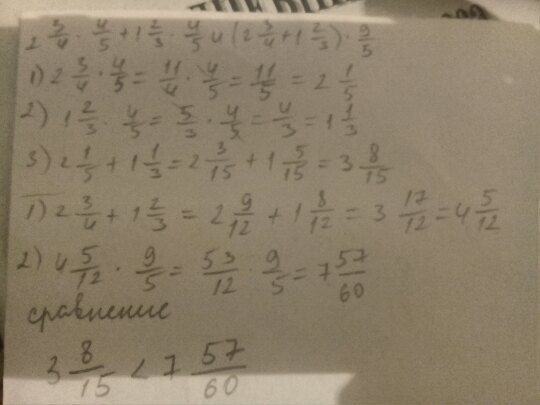 2 3/4 · 4/5 + 1 2/3 · 4/5 и (2 3/4 + 1 2/3) · 9/5
1) 2 3/4 · 4/5 = 11/4 · 4/5 = 11/5 = 2 1/5
2) 1 2/3 · 4/5 = 5/3 · 4/5 = 4/3 = 1 1/3
3) 2 1/5 + 1 1/3 = 2 3/15 + 1 5/15 = 3 8/15
1) 2 3/4 + 1 2/3 = 2 9/12 + 1 8/12 = 3 17/12 = 4 5/12
2) 4 5/12 · 9/5 = 53/12 · 9/5 = 7 57/60
сравнение
3 8/15 < 7 57/60